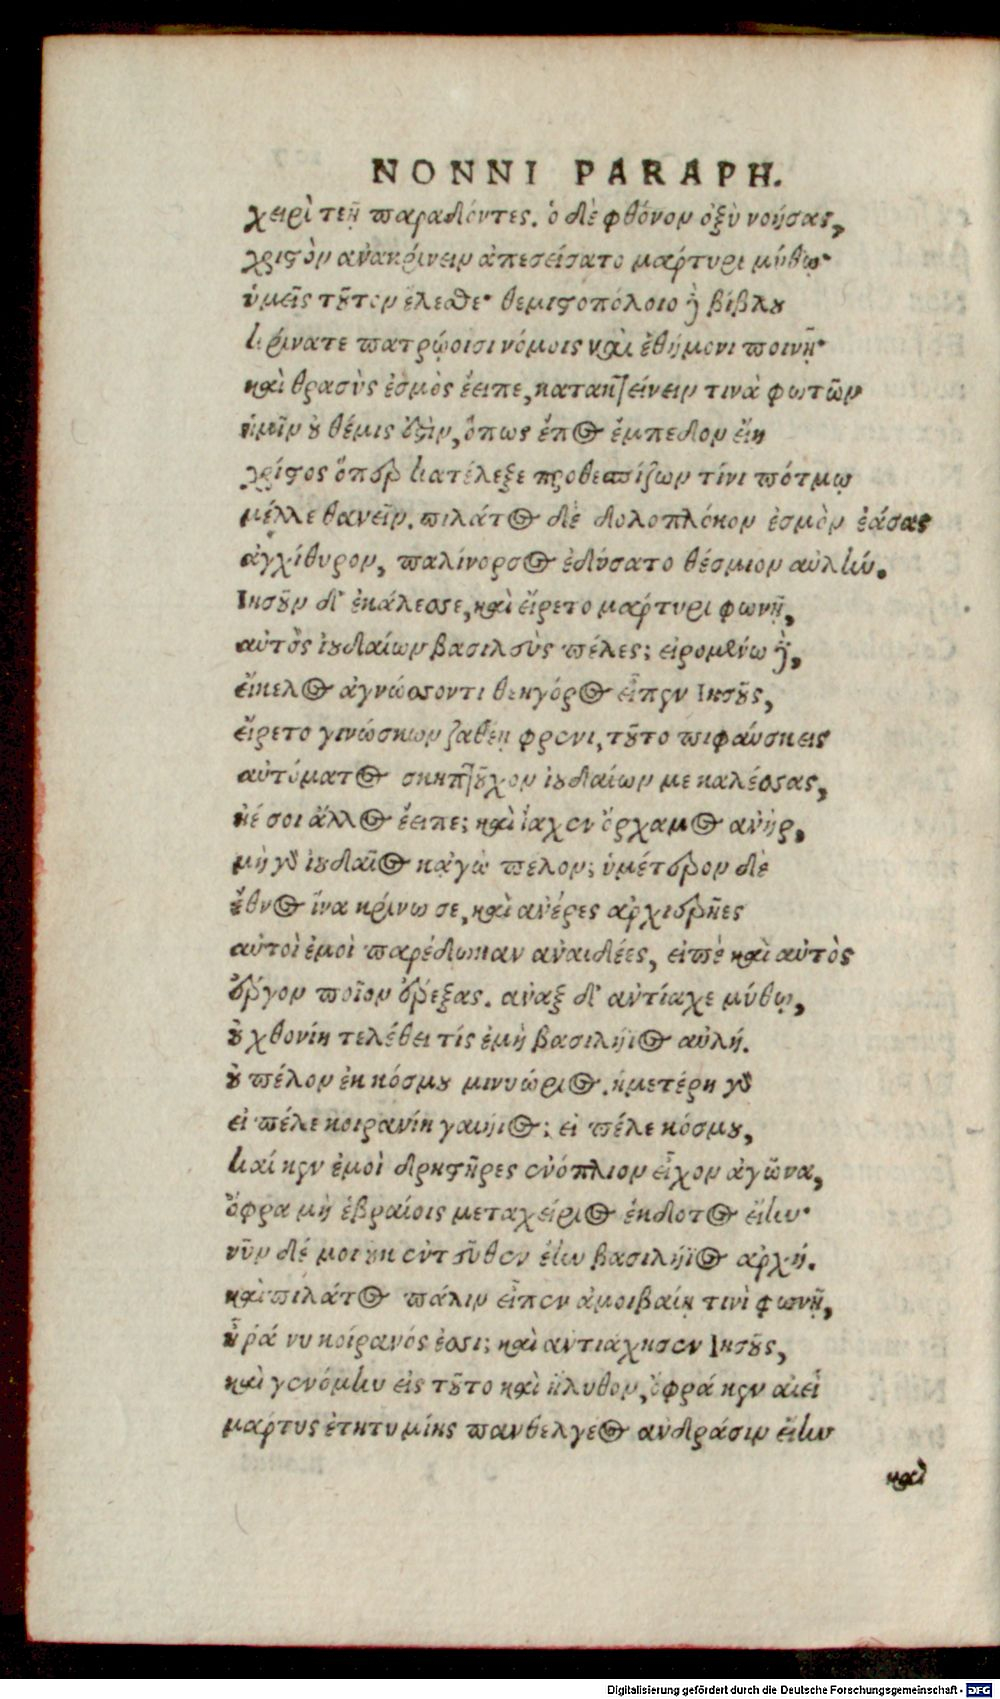 NONNI PARAPH.
χειρὶ τεῇ παραδόντες. ὁ δὲ φθόνον ὀξὺ νοήσας,
χριστὸν ἀνακρίνειν ἀπεσείσατο μάρτυρι μύθῳ·
ὑμεῖς τοῦτον ἕλεσθε· θεμιστοπόλοιο ἢ βίβλου
κρίνατε πατρῴοισι νόμοις καὶ ἐθήμονι ποινῇ·
καὶ θρασὺς ἐσμὸς ἔειπε, κατακτείνειν τινὰ φωτῶν
ἡμῖν οὐ θέμις ἐστὶν, ὅπως ἔπος ἔμπεδον εἴη
χρίστος ὅπερ κατέλεξε προθεσπίζων τίνι πότμῳ
μέλλε θανεῖν. πιλάτος δὲ δολοπλόκον ἐσμὸν ἐάσας
ἀγχίθυρον, παλίνορσος ἐδύσατο θέσμιον αὐλήν.
Ιησοῦν δ' ἐκάλεσσε, καὶ εἴρετο μάρτυρι φωνῇ,
αὐτὸς ἰουδαίων βασιλεὺς πέλες; εἰρομένῳ ἢ,
εἴκελος ἀγνώσσοντι θεηγόρος εἶπεν Ιησοῦς,
εἴρετο γινώσκων ζαθέῃ φρενὶ, τοῦτο πιφαύσκεις
αὐτόματος σκηπτοῦχον ἰουδαίων με καλέσσας,
ἠέ σοι ἄλλος ἔειπε; καὶ ἴαχεν ὄρχαμος ἀνήρ,
μὴ γὰρ ἰουδαῖος κἀγὼ πέλον; ὑμέτερον δὲ
ἔθνος ἵνα κρίνω σε, καὶ ἀνέρες ἀρχιερῆες
αὐτοὶ ἐμοὶ παρέδωκαν ἀναιδέες, εἰπὲ καὶ αὐτὸς
ἔργον ποῖον ἔρεξας. ἄναξ δ' ἀντίαχε μύθῳ,
οὐ χθονίη τελέθει τίς ἐμὴ βασιλήϊος αὐλή.
οὐ πέλον ἐκ κόσμου μινυώριος. ἡμετέρη γὰρ
εἰ πέλε κοιρανίη γαιήιος; εἰ πέλε κόσμου,
καί κεν ἐμοὶ δρηστῆρες ἐνόπλιον εἶχον ἀγῶνα,
ὄφρα μὴ ἑβραίοις μεταχείριος ἔκδοτος εἴην·
νῦν δέ μοι οὐκ ἐντεῦθεν ἔην βασιλήϊος ἀρχή.
καὶ πιλάτος πάλιν εἶπεν ἀμοιβαίῃ τινὶ φωνῇ,
ἦ ῥά νυ κοίρανός ἐσσι; καὶ ἀντιάχησεν Ιησοῦς,
καὶ γενόμην εἰς τοῦτο καὶ ἤλυθον, ὄφρά κεν αἰεὶ
μάρτυς ἐτητυμίης πανθελγέος ἀνδράσιν εἴην
καὶ
Digitalisierung gefördert durch die Deutsche Forschungsgemeinschaft - DFG